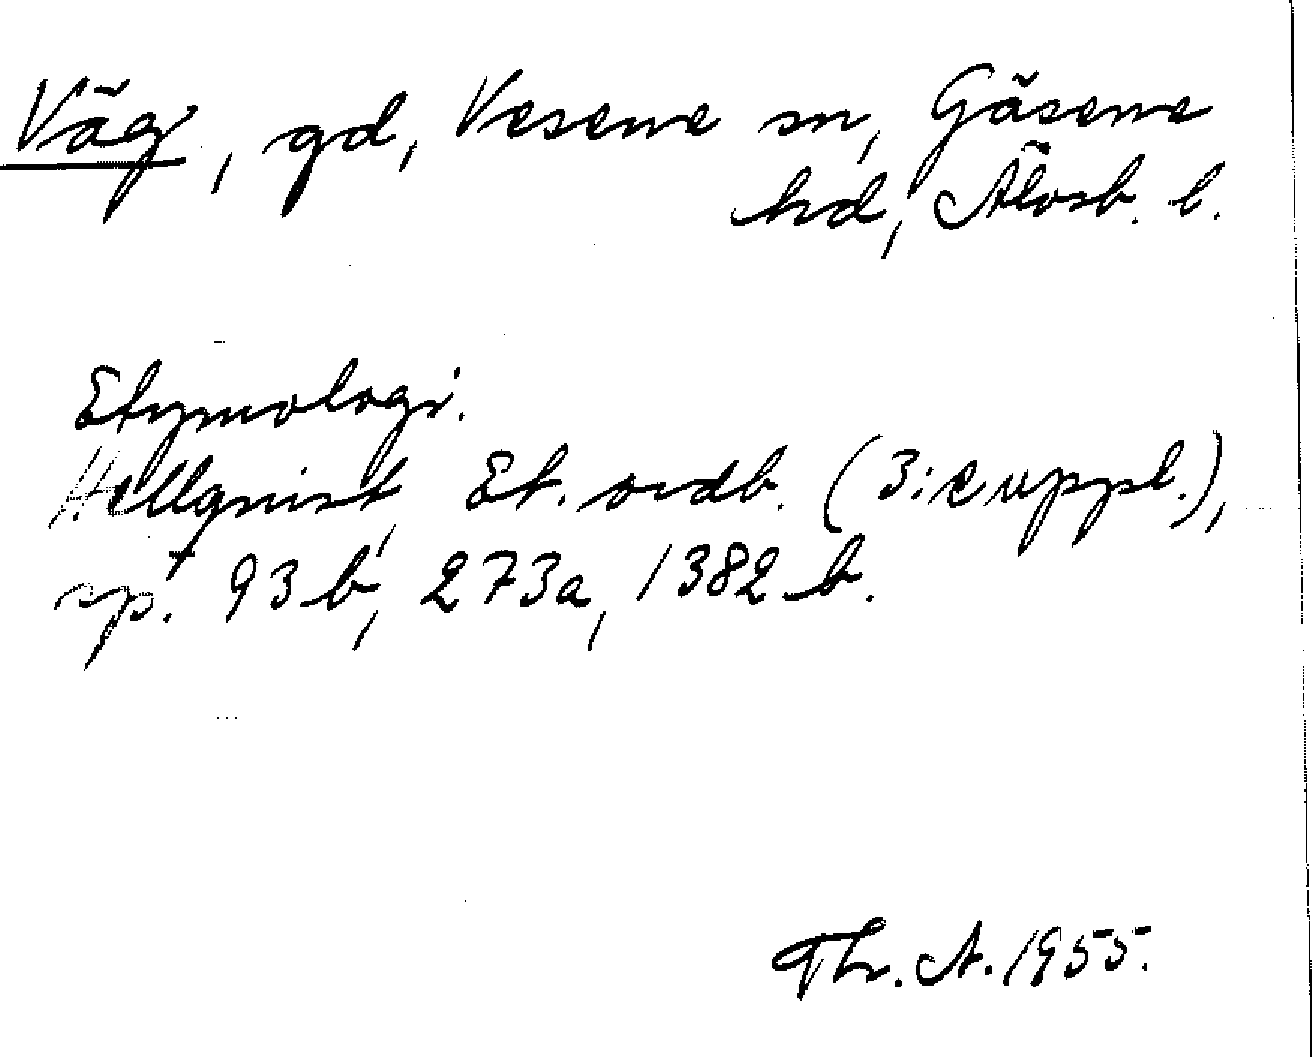 Väg, gd, Vesene sn, Gäsene
hd, Älvsb. l.
Etymologi.
Hellquist, Et. ordb. (3:e uppl.),
sp. 93 b, 273a, 1382 b.
Thr. A. 1955.